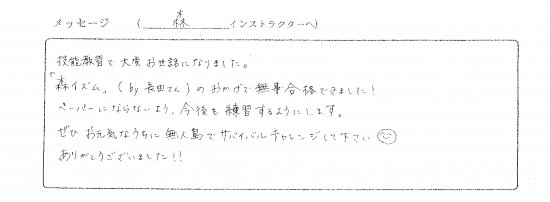 メッセージ ( 森 インストラクターへ)
技能教習で大変お世話になりました。
「森イズム」(by 長田さん)のおかげで無事合格できました!
ペーパーにならないよう、今後も練習するようにします。
ぜひお元気なうちに無人島でサバイバルチャレンジして下さい
ありがとうございました!!